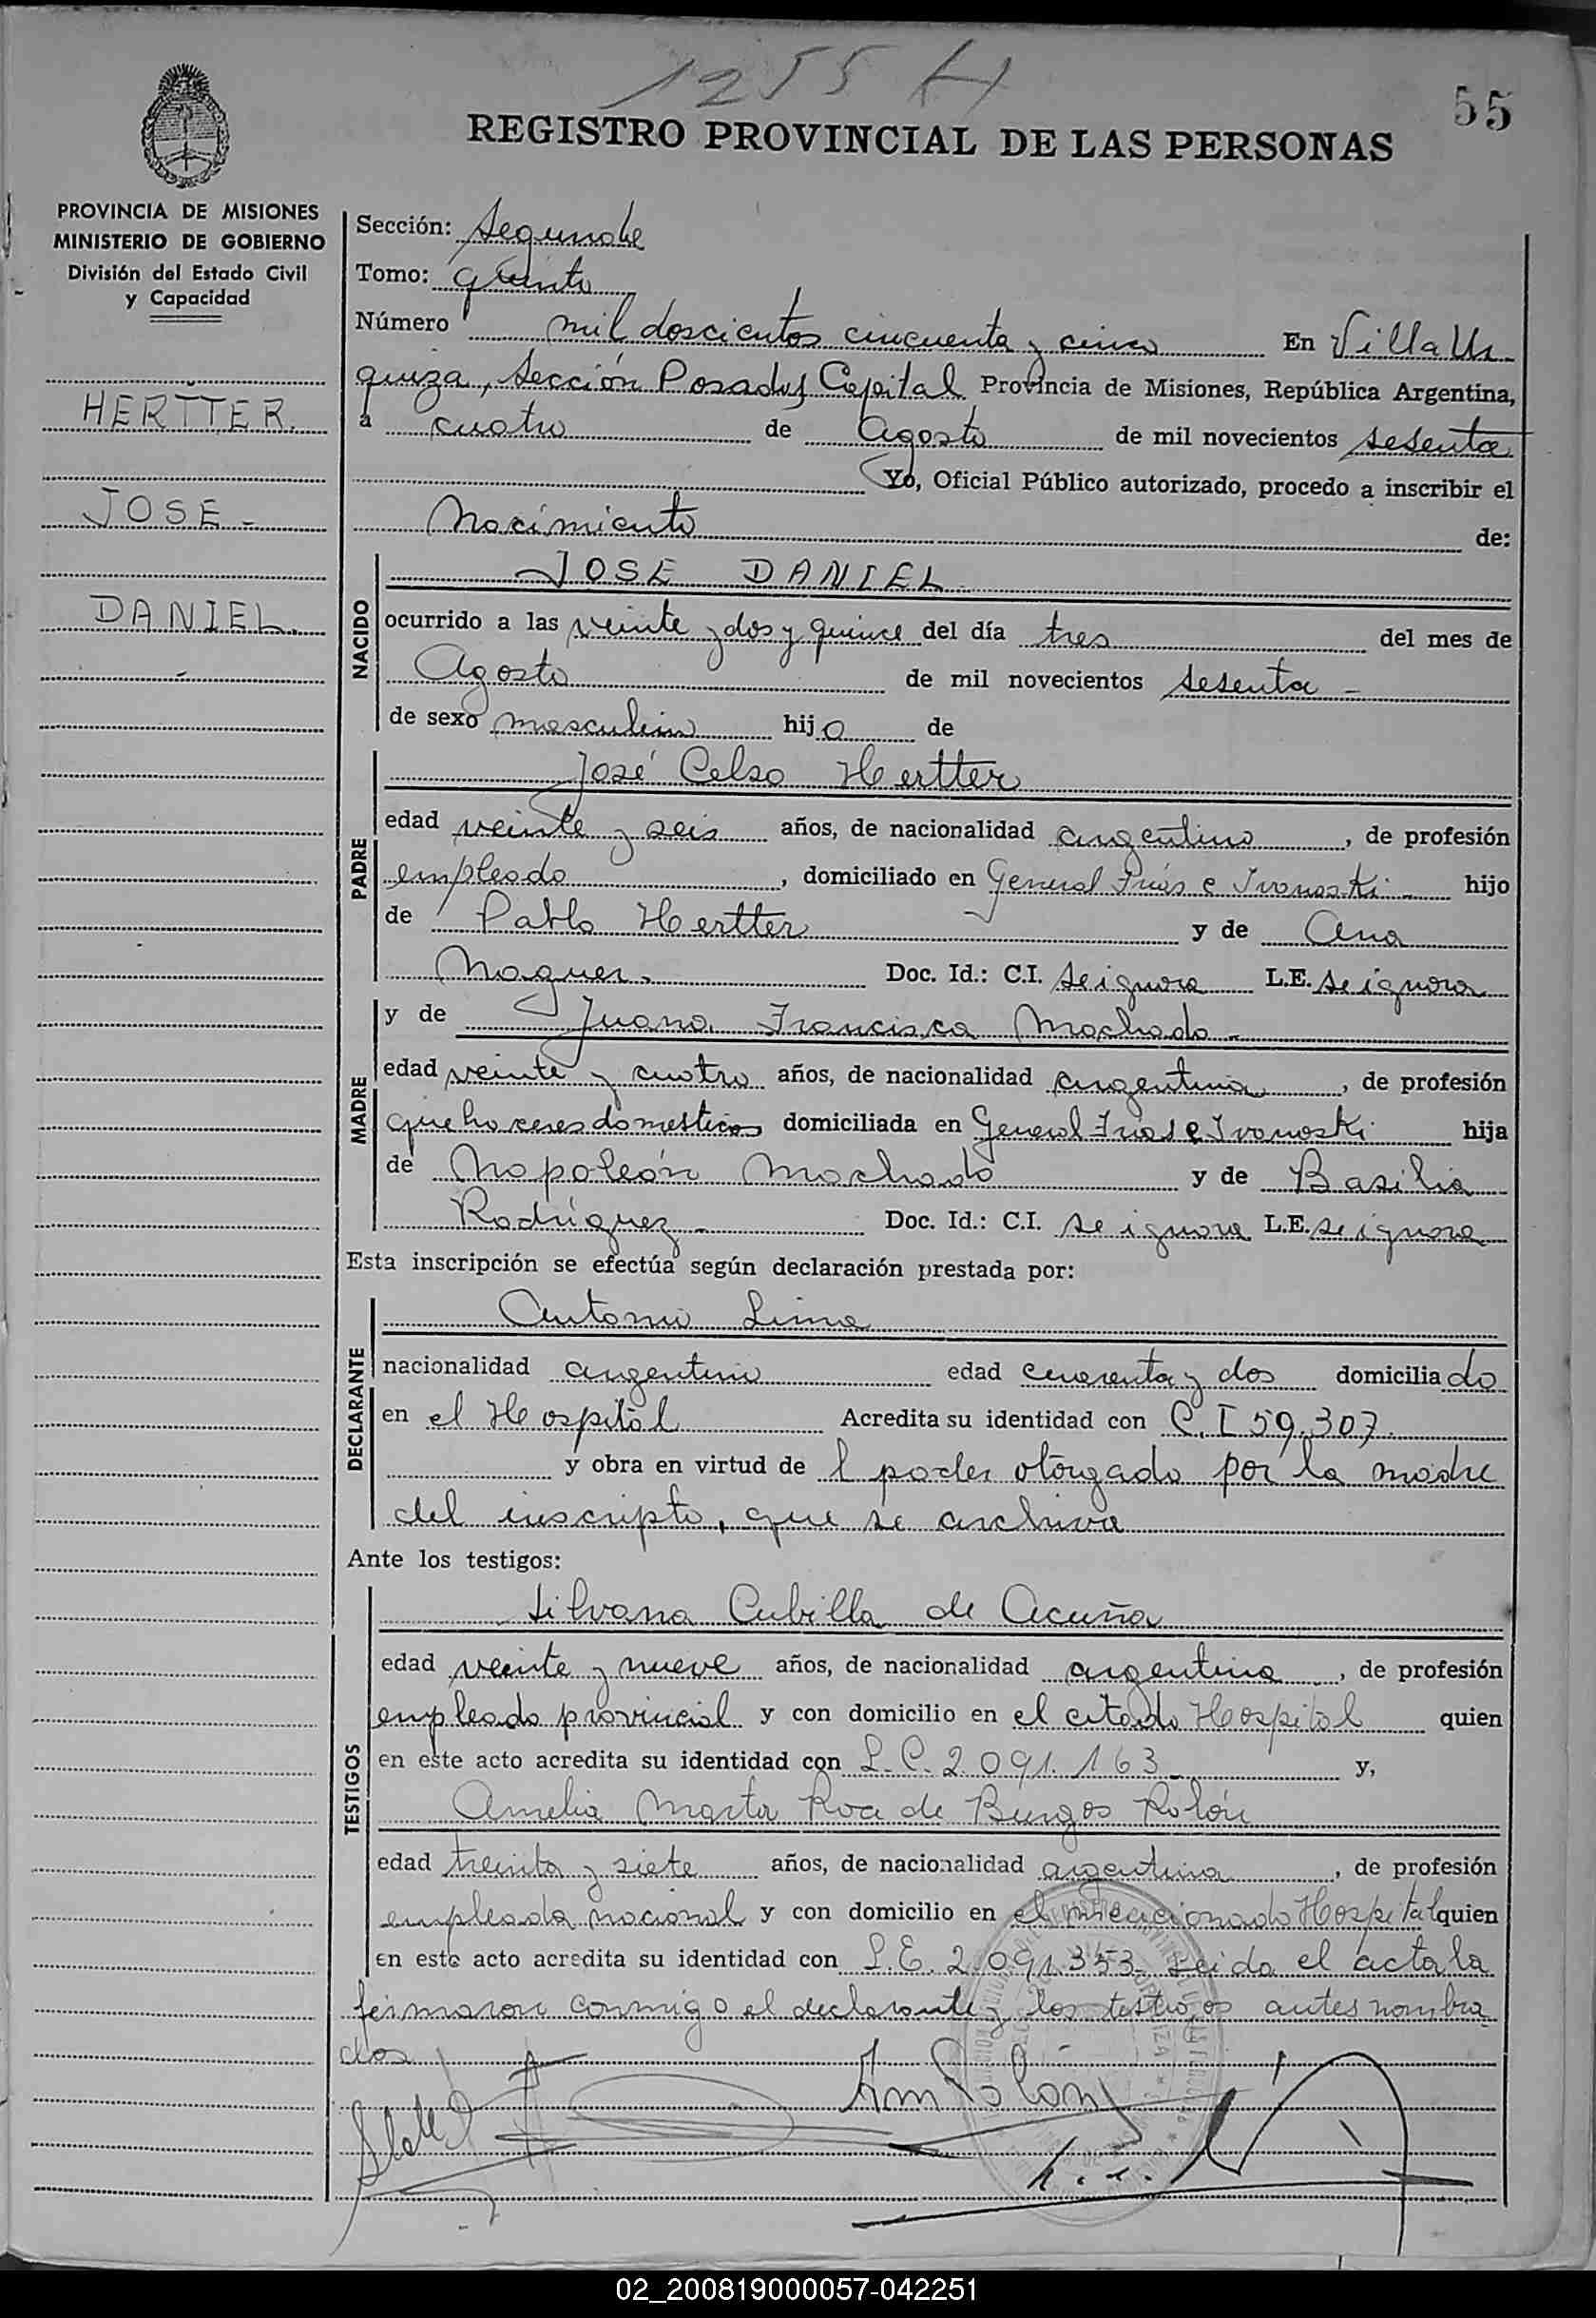 1255 H
55
REGISTRO PROVINCIAL DE LAS PERSONAS
PROVINCIA DE MISIONES
MINISTERIO DE GOBIERNO
División del Estado Civil
y Capacidad
HERTTER.
JOSE -
DANIEL.
Sección: Segunda
Tomo: quinto
Número mil doscientos cincuenta y cinco En Villa Ur
quiza, Sección Posadas Capital Provincia de Misiones, República Argentina,
a cuatro de Agosto de mil novecientos sesenta
Yo, Oficial Público autorizado, procedo a inscribir el
Nacimiento de:
NACIDO
JOSE DANIEL
ocurrido a las veinte y dos y quince del día tres del mes de
Agosto de mil novecientos sesenta -
de sexo masculino hijo de
PADRE
José Celso Hertter
edad veinte y seis años, de nacionalidad argentino, de profesión
empleado, domiciliado en General Frias e Ivanoski hijo
de Pablo Hertter y de Ana
Noguer. Doc. Id.: C.I. se ignora L.E. se ignora
MADRE
y de Juana Francisca Machado -
edad veinte y cuatro años, de nacionalidad argentina, de profesión
quehaceres domesticos domiciliada en General Frias e Ivanoski hija
de Napoleón Machado y de Basilia
Rodríguez - Doc. Id.: C.I. se ignora L.E. se ignora
Esta inscripción se efectúa según declaración prestada por:
DECLARANTE
Antonio Lima
nacionalidad argentino edad cuarenta y dos domiciliado
en el Hospital Acredita su identidad con C.I 59.307.
y obra en virtud de l poder otorgado por la madre
del inscripto, que se archiva
Ante los testigos:
TESTIGOS
Silvana Cubilla de Acuña
edad veinte y nueve años, de nacionalidad argentina, de profesión
empleada provincial y con domicilio en el citado Hospital quien
en este acto acredita su identidad con L.C. 2.091.163 - y,
Amelia Marta Roa de Burgos Rolón
edad treinta y siete años, de nacionalidad argentina, de profesión
empleada nacional y con domicilio en el mencionado Hospital quien
en este acto acredita su identidad con L.E. 2.091.353 Leida el acta la
firmaron conmigo el declarante y los testigos antes nombra
dos
02_200819000057-042251